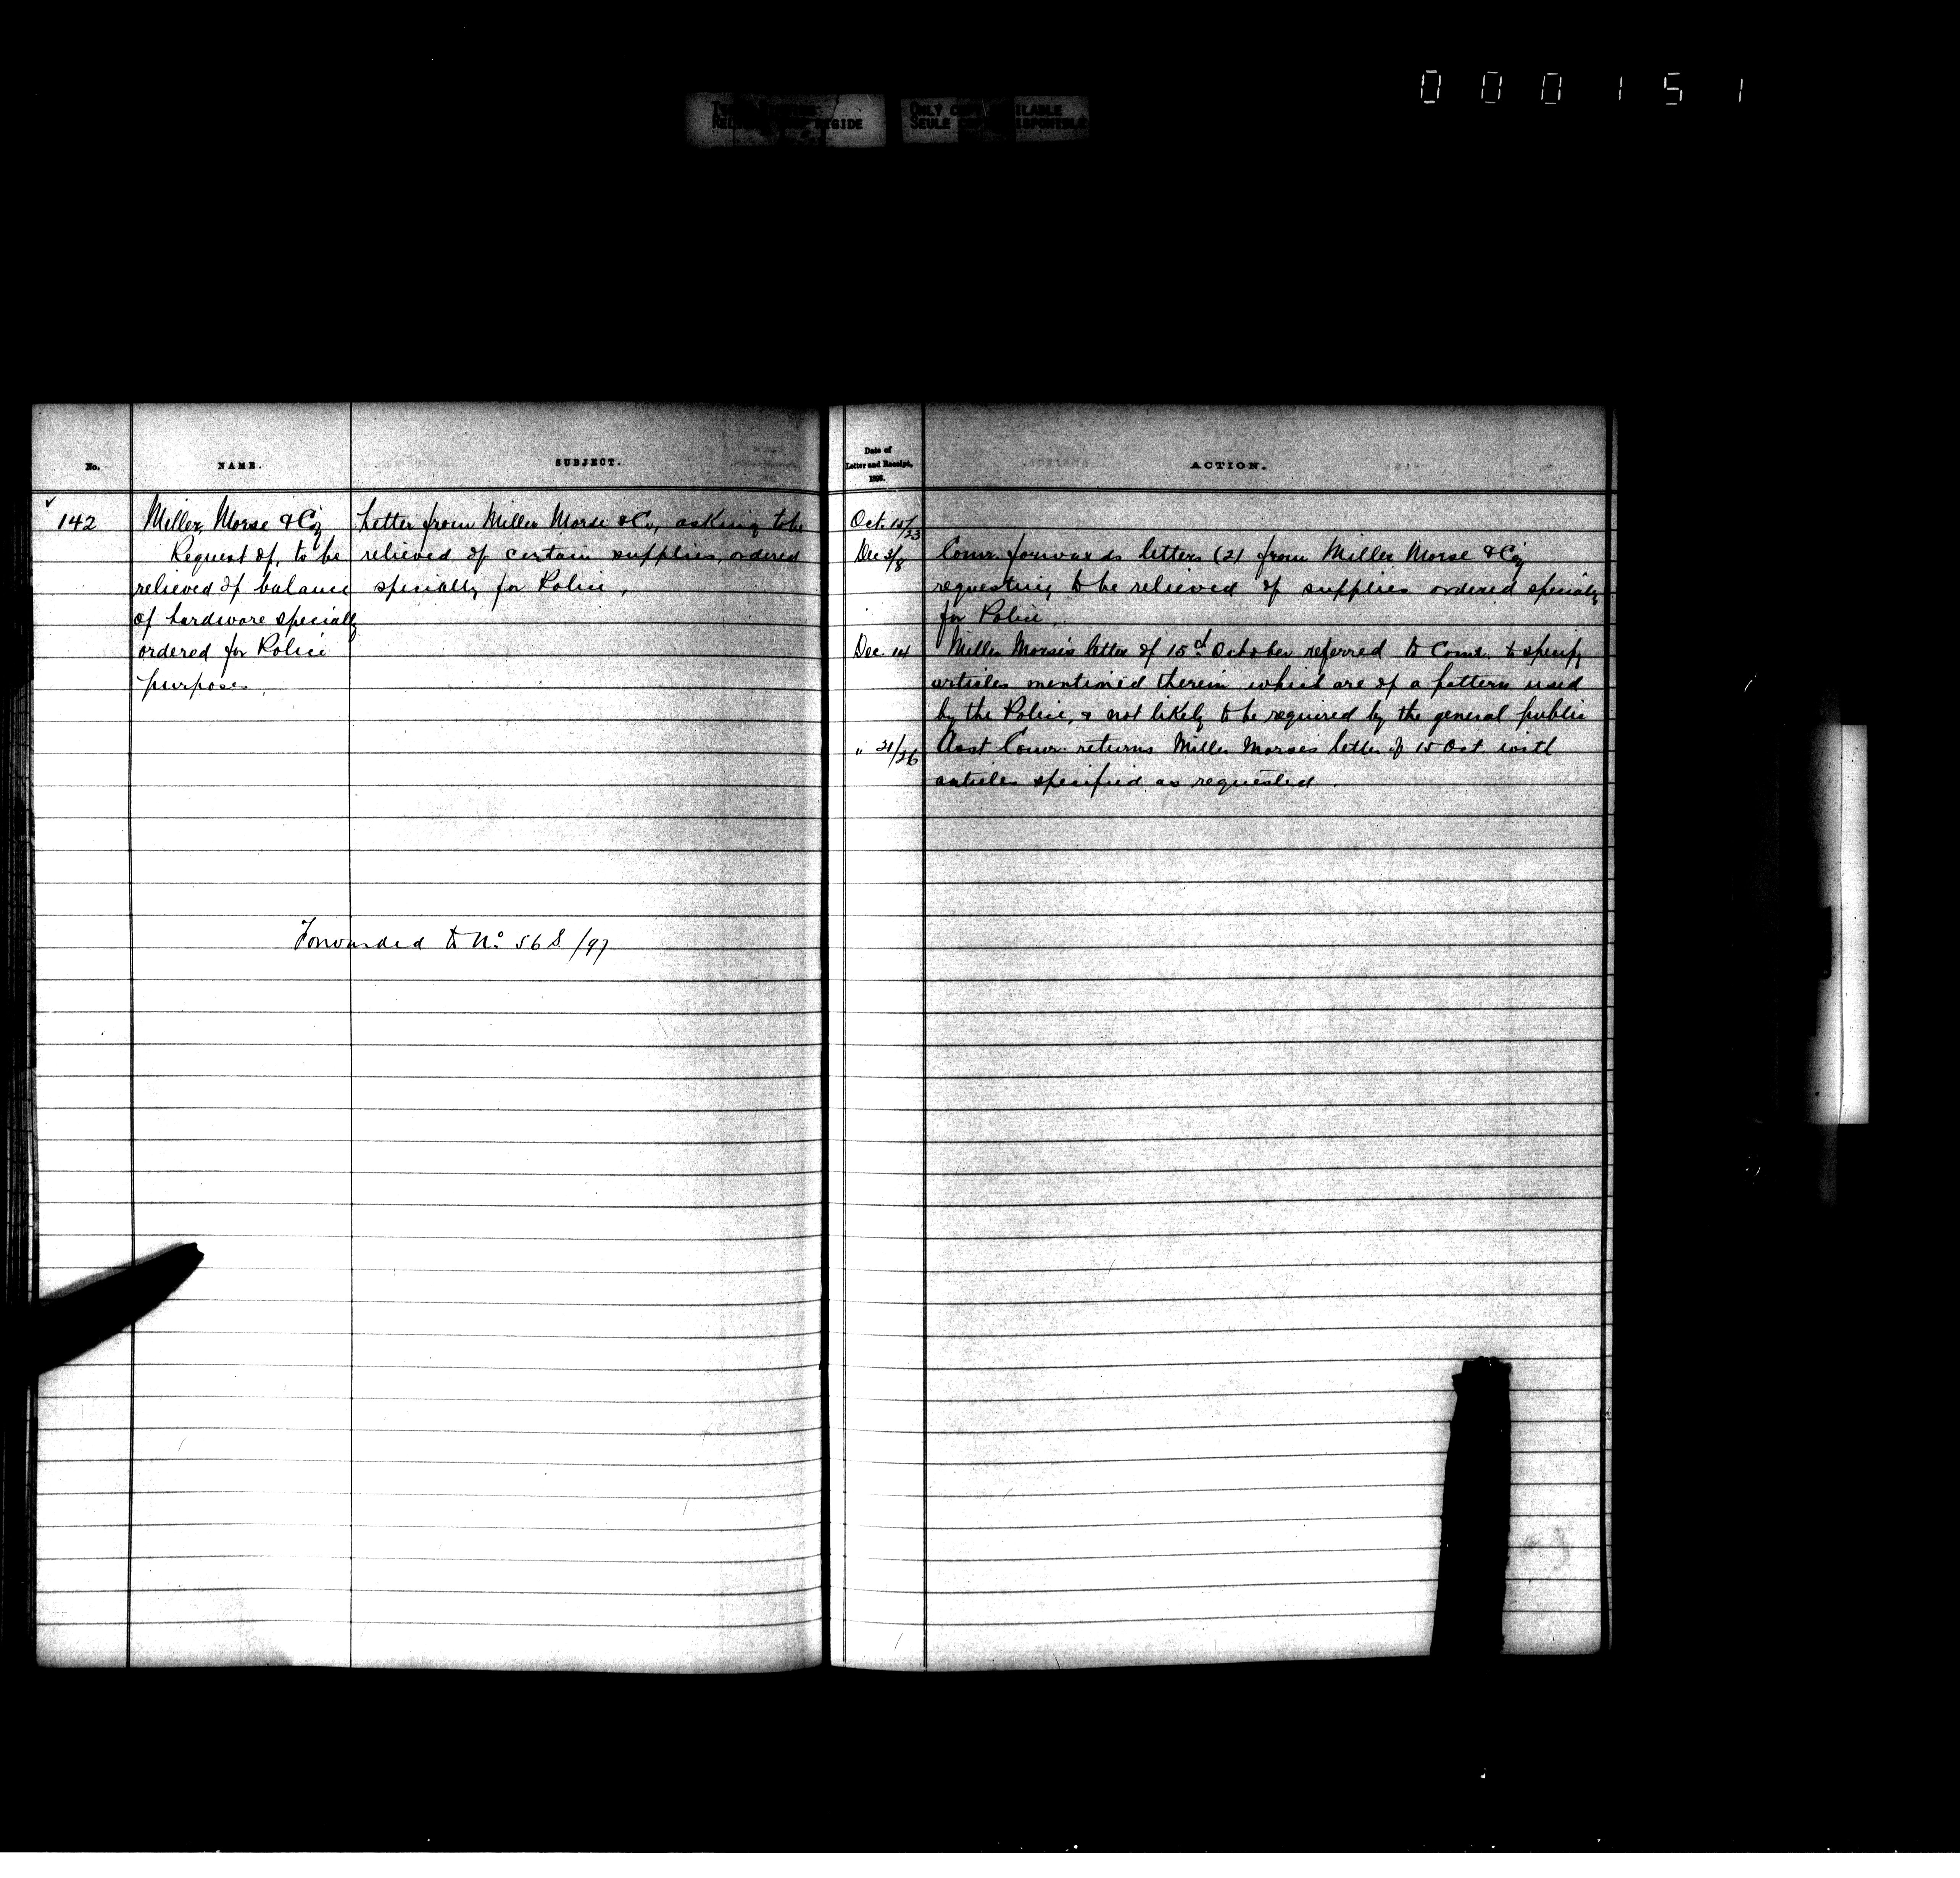 000151
ONLY COPY AVAILABLE
No.
NAME.
SUBJECT.
142
Miller, Morse & Coy
Request of, to be
relieved of balance
of hardware specially
ordered for Police
purposes.
Letter from Miller Morse & Co, asking to be
relieved of certain supplies, ordered
specially for Police.
Forwarded to No 56 S/97
Date of
Letter and Receipt,
ACTION.
Oct. 15/23
Dec 3/8 Comr. forwards letters (2) from Miller Morse & Coy
requesting to be relieved of supplies ordered specially
for Police.
Dec. 14 Miller Morse's letter of 15th October referred to Comr. to specify
articles mentioned therein which are of a pattern used
by the Police, & not likely to be required by the general public
" 21/26 Asst Comr. returns Miller Morse's letter of 15 Oct with
articles specified as requested.